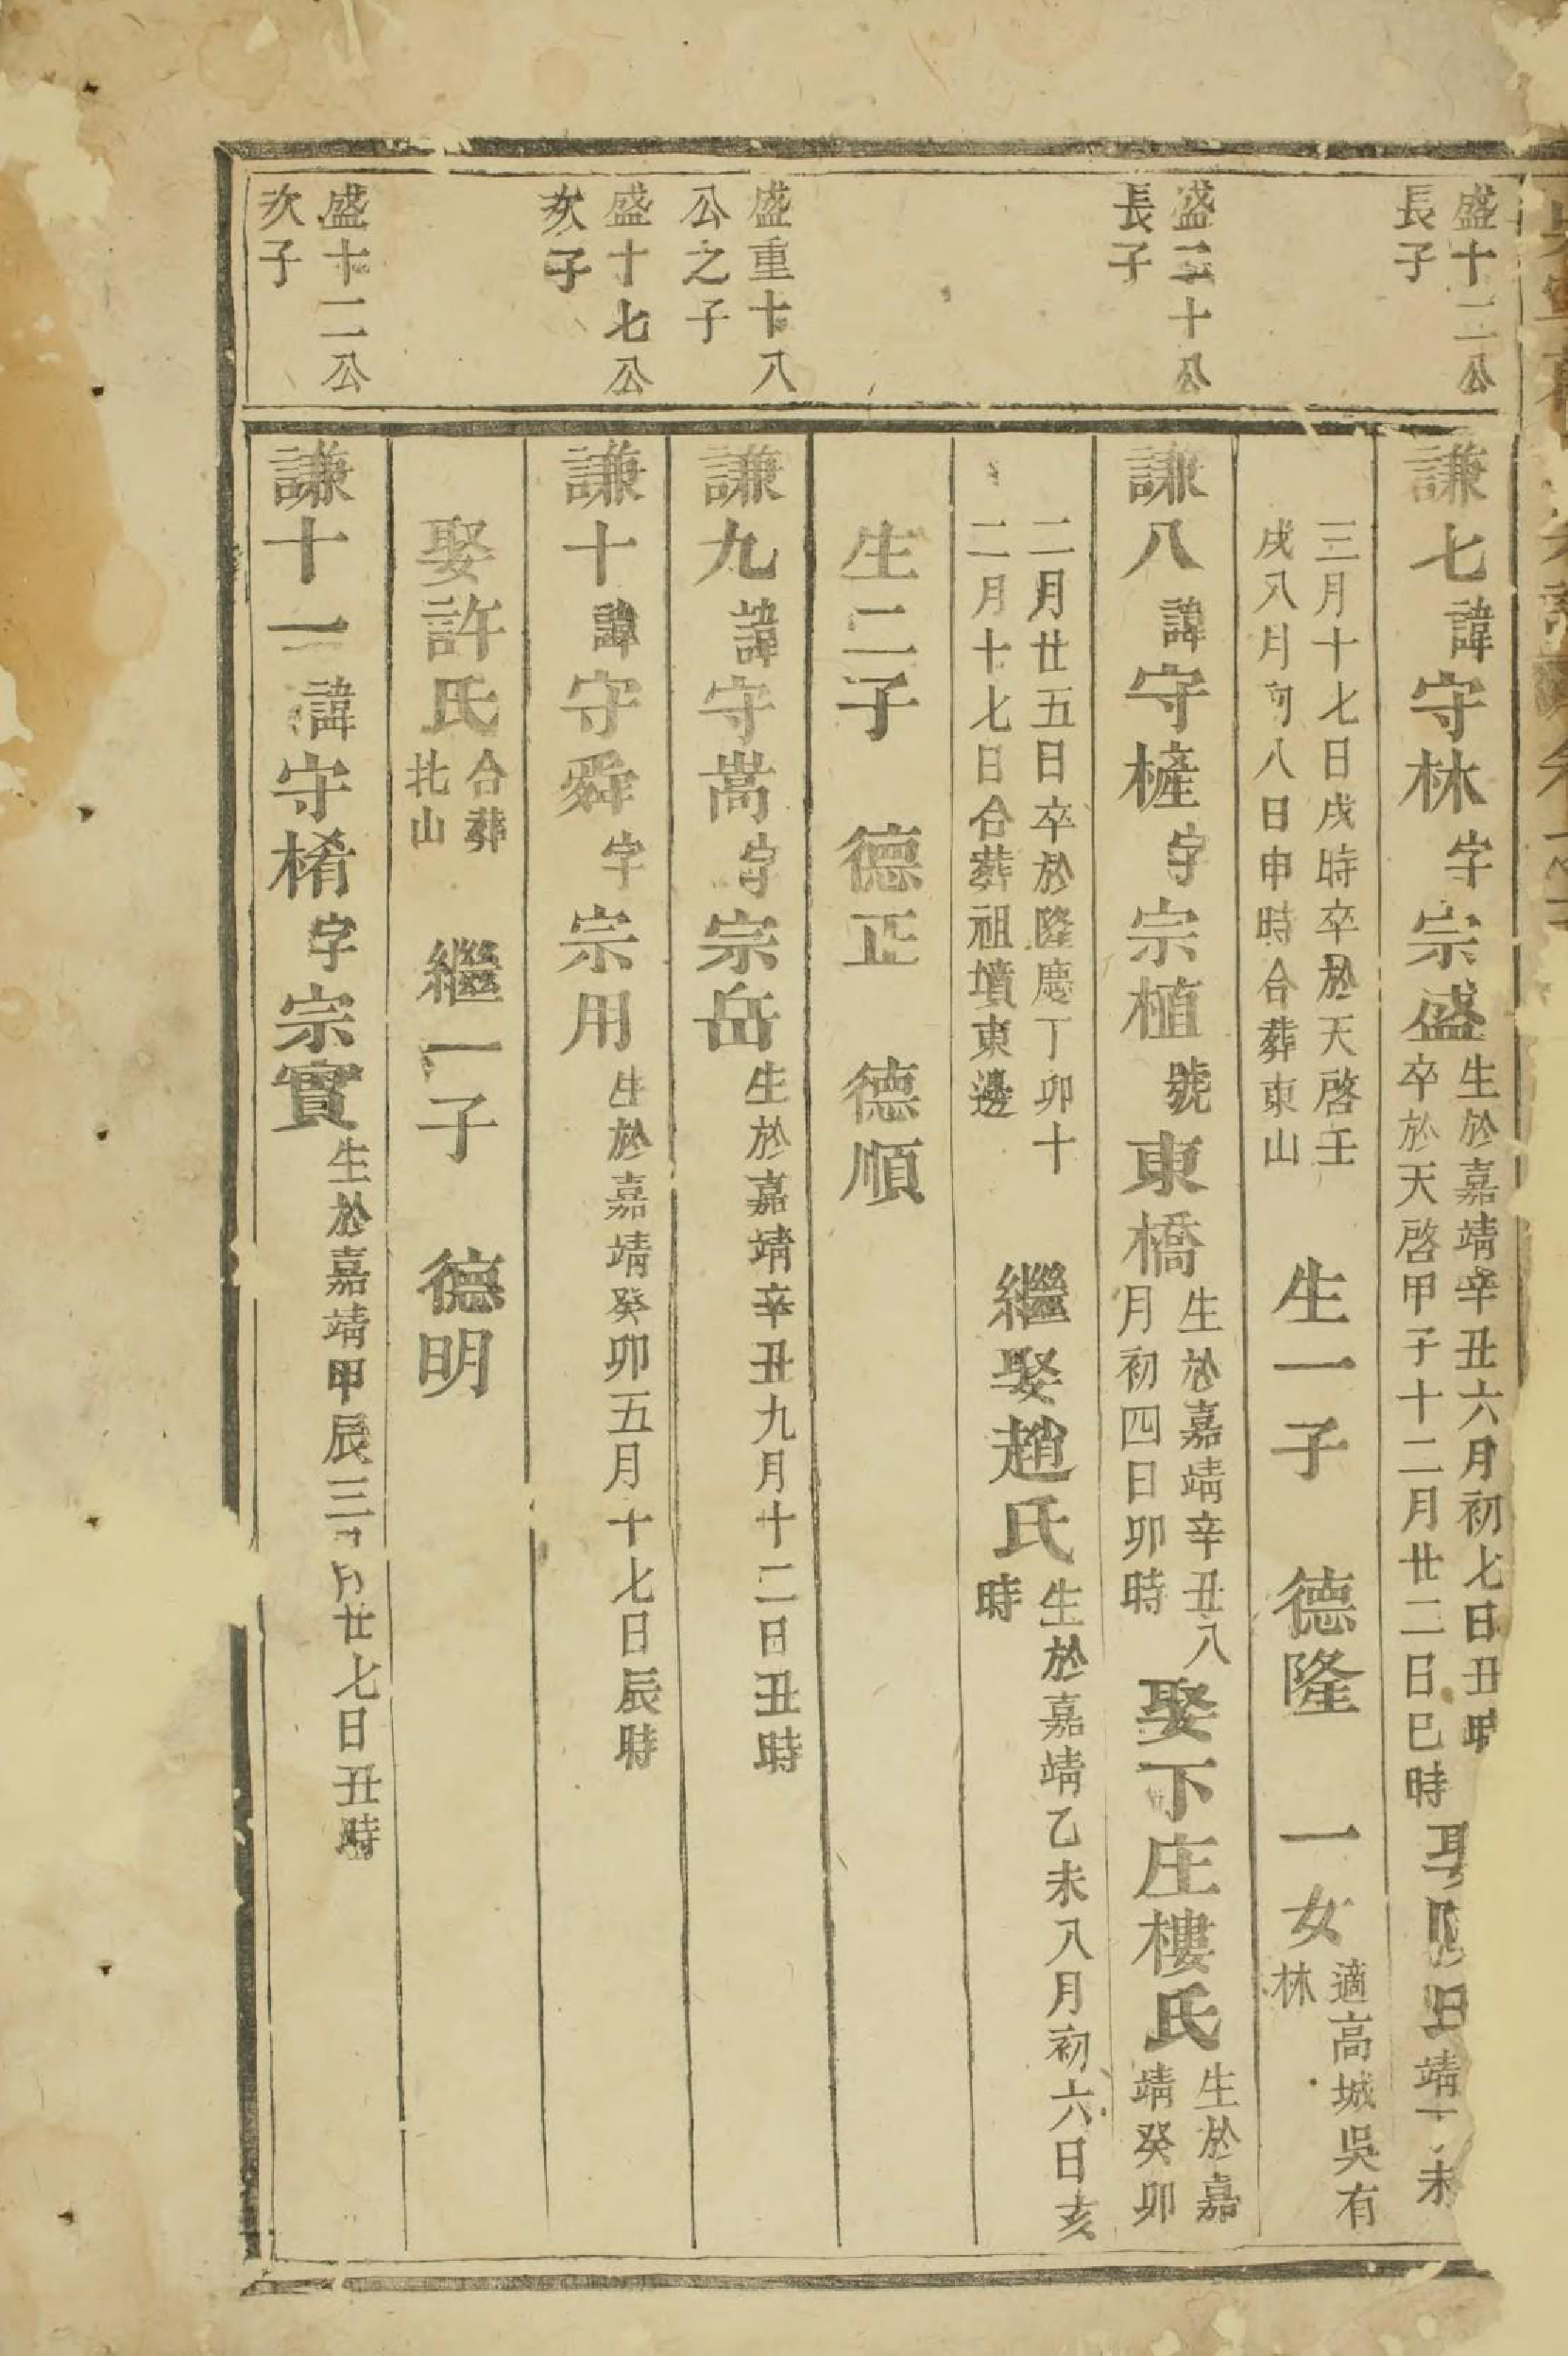 盛十二公
長子
謙七諱守林字宗盛
生於嘉靖辛丑六月初七日丑時
卒於天啓甲子十二月廿二日巳時
娶
靖
未
三月十七日戌時卒於天啓壬
戌八月初八日申時合葬東山
生一子 德隆 一女
適高城吳有
林
盛二十公
長子
謙八諱守榳字宗植號東橋
生於嘉靖辛丑八
月初四日卯時
娶下庄樓氏
生於嘉
靖癸卯
二月廿五日卒於隆慶丁卯十
二月十七日合葬祖墳東邊
繼娶趙氏
生於嘉靖乙未八月初六日亥
時
生二子 德正 德順
盛重十八
公之子
謙九諱守嵩字宗岳
生於嘉靖辛丑九月十二日丑時
盛十七公
次子
謙十諱守舜字宗用
生於嘉靖癸卯五月十七日辰時
娶許氏
合葬
北山
繼一子 德明
盛十二公
次子
謙十一諱守榾字宗實
生於嘉靖甲辰三月廿七日丑時